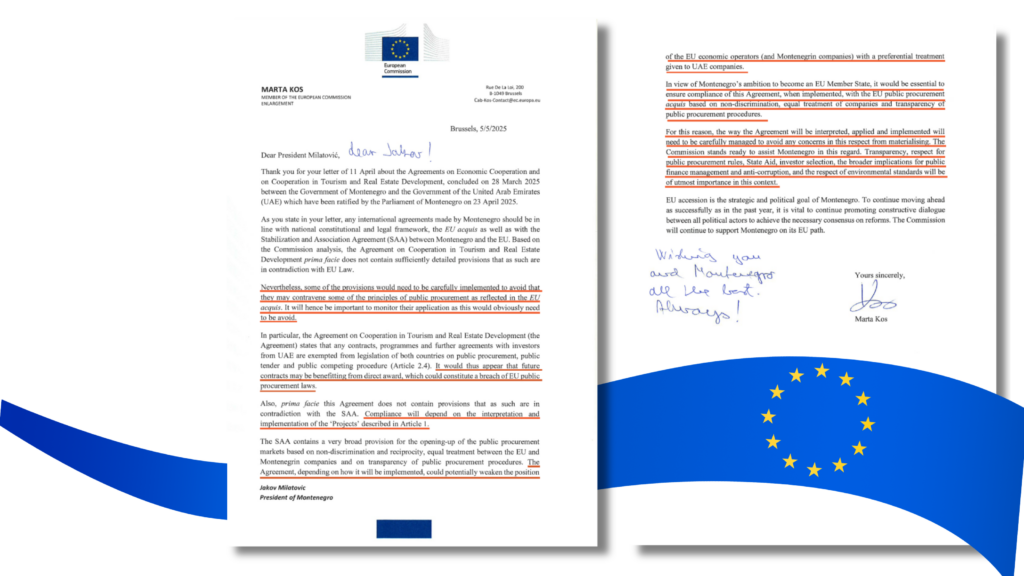 European
Commission
MARTA KOS
MEMBER OF THE EUROPEAN COMMISSION
ENLARGEMENT
Rue De La Loi, 200
B-1049 Brussels
Cab-Kos-Contact@ec.europa.eu
Brussels, 5/5/2025
Dear President Milatović, dear Jakov!
Thank you for your letter of 11 April about the Agreements on Economic Cooperation and
on Cooperation in Tourism and Real Estate Development, concluded on 28 March 2025
between the Government of Montenegro and the Government of the United Arab Emirates
(UAE) which have been ratified by the Parliament of Montenegro on 23 April 2025.
As you state in your letter, any international agreements made by Montenegro should be in
line with national constitutional and legal framework, the EU acquis as well as with the
Stabilization and Association Agreement (SAA) between Montenegro and the EU. Based on
the Commission analysis, the Agreement on Cooperation in Tourism and Real Estate
Development prima facie does not contain sufficiently detailed provisions that as such are
in contradiction with EU Law.
Nevertheless, some of the provisions would need to be carefully implemented to avoid that
they may contravene some of the principles of public procurement as reflected in the EU
acquis. It will hence be important to monitor their application as this would obviously need
to be avoid.
In particular, the Agreement on Cooperation in Tourism and Real Estate Development (the
Agreement) states that any contracts, programmes and further agreements with investors
from UAE are exempted from legislation of both countries on public procurement, public
tender and public competing procedure (Article 2.4). It would thus appear that future
contracts may be benefitting from direct award, which could constitute a breach of EU public
procurement laws.
Also, prima facie this Agreement does not contain provisions that as such are in
contradiction with the SAA. Compliance will depend on the interpretation and
implementation of the 'Projects' described in Article 1.
The SAA contains a very broad provision for the opening-up of the public procurement
markets based on non-discrimination and reciprocity, equal treatment between the EU and
Montenegrin companies and on transparency of public procurement procedures. The
Agreement, depending on how it will be implemented, could potentially weaken the position
Jakov Milatovic
President of Montenegro
of the EU economic operators (and Montenegrin companies) with a preferential treatment
given to UAE companies.
In view of Montenegro's ambition to become an EU Member State, it would be essential to
ensure compliance of this Agreement, when implemented, with the EU public procurement
acquis based on non-discrimination, equal treatment of companies and transparency of
public procurement procedures.
For this reason, the way the Agreement will be interpreted, applied and implemented will
need to be carefully managed to avoid any concerns in this respect from materialising. The
Commission stands ready to assist Montenegro in this regard. Transparency, respect for
public procurement rules, State Aid, investor selection, the broader implications for public
finance management and anti-corruption, and the respect of environmental standards will be
of utmost importance in this context.
EU accession is the strategic and political goal of Montenegro. To continue moving ahead
as successfully as in the past year, it is vital to continue promoting constructive dialogue
between all political actors to achieve the necessary consensus on reforms. The Commission
will continue to support Montenegro on its EU path.
Wishing you
and Montenegro
all the best.
Always!
Yours sincerely,
Marta Kos